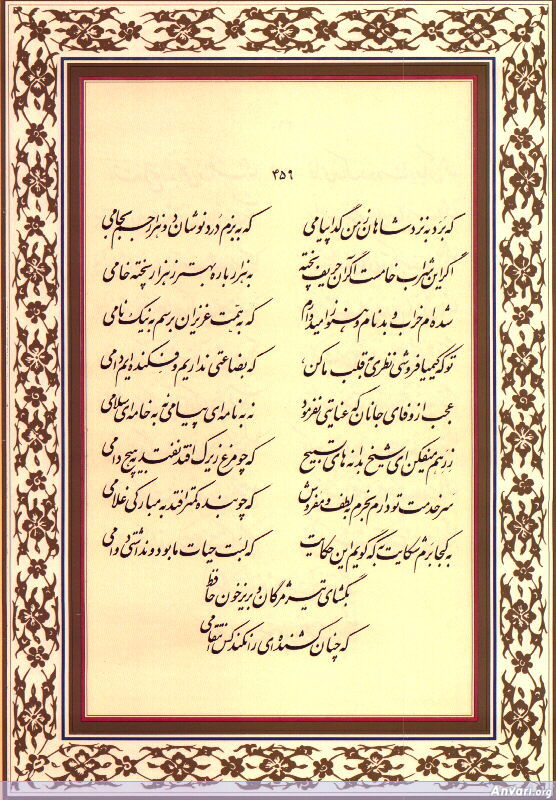 ۴۵۹
که برد به نزد شاهان ز من گدا پیامی که به بزم دردنوشان دو هزار جم بجامی
اگر این شراب خامست اگر آن حریف پخته به هزار باره بهتر ز هزار پخته خامی
شده‌ام خراب و بدنام و هنوز امیدوارم که به همت عزیزان برسم به نیک نامی
تو که کیمیا فروشی نظری به قلب ما کن که بضاعتی نداریم و فکنده‌ایم دامی
عجب از وفای جانان که عنایتی نفرمود نه به نامه‌ای پیامی نه به خامه‌ای سلامی
ز رهم میفکن ای شیخ بدانه‌های تسبیح که چو مرغ زیرک افتد نفتد به هیچ دامی
سر خدمت تو دارم بخرم بلطف و مفروش که چو بنده کمتر افتد به مبارکی غلامی
به کجا برم شکایت به که گویم این حکایت که لبت حیات ما بود و نداشتی دوامی
بگشای تیر مژگان و بریز خون حافظ
که چنان کشنده‌ای را نکند کس انتقامی
Anvari.org